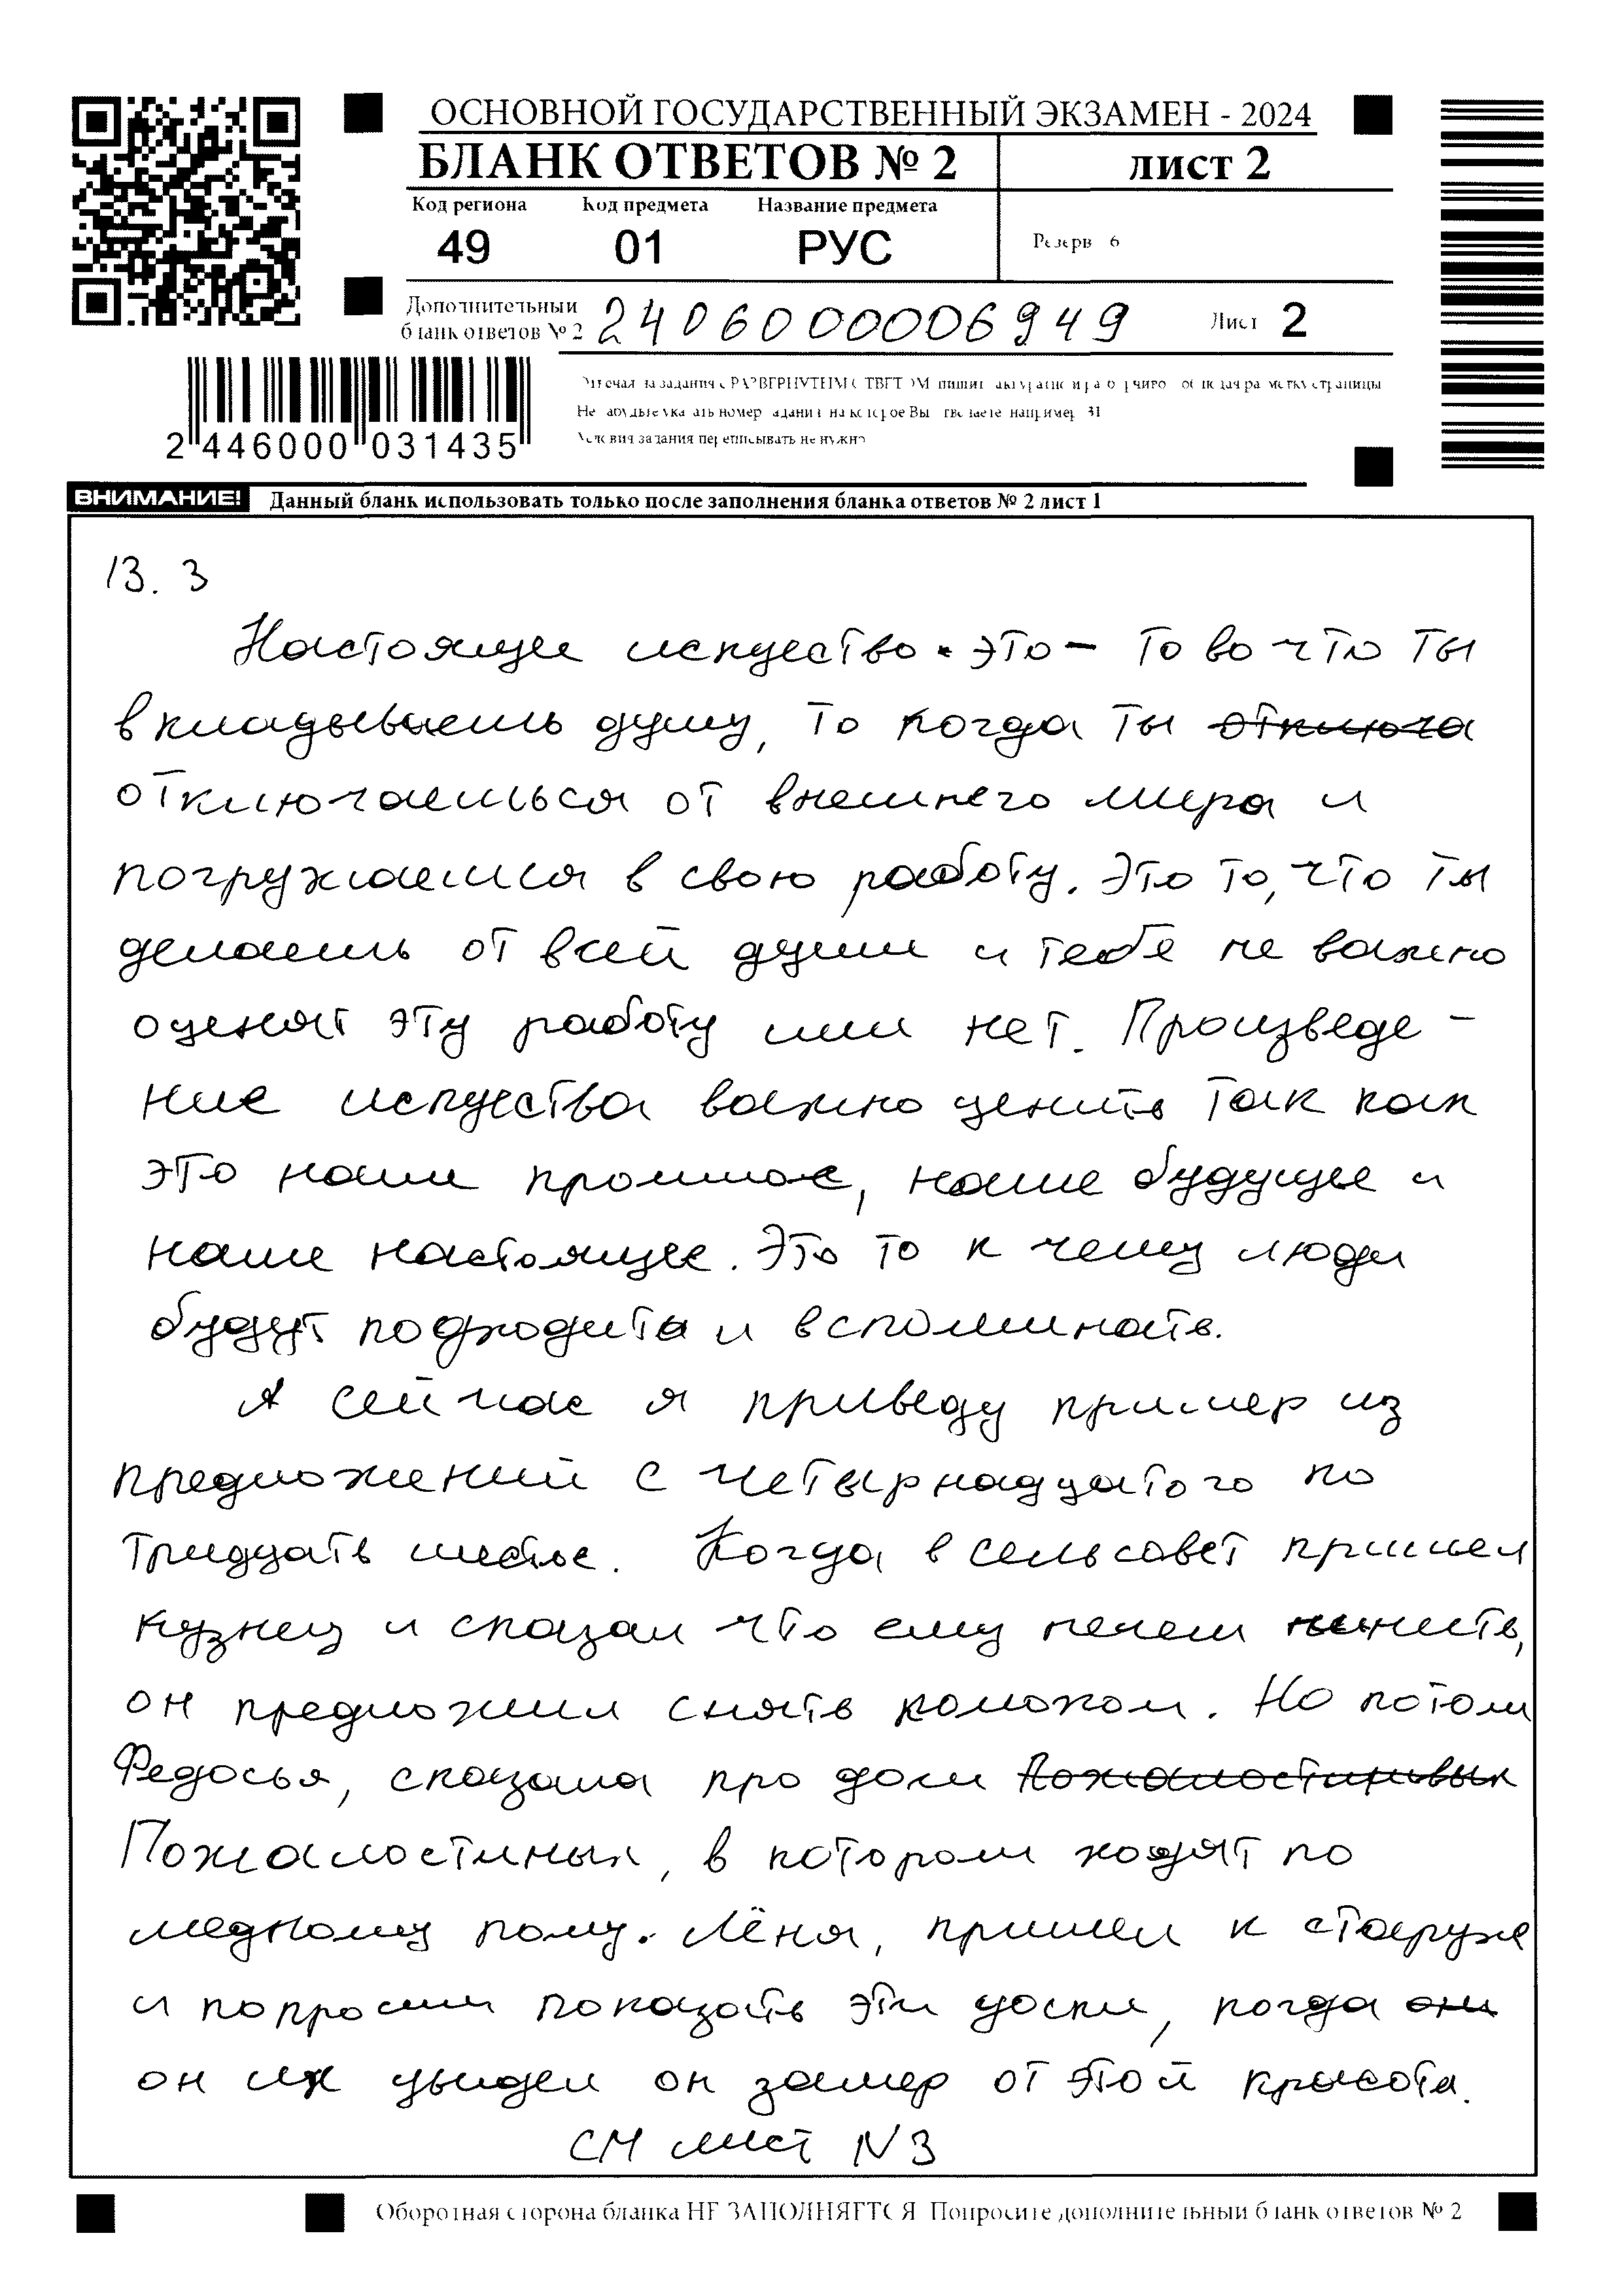 ОСНОВНОЙ ГОСУДАРСТВЕННЫЙ ЭКЗАМЕН - 2024
БЛАНК ОТВЕТОВ № 2
лист 2
Код региона Код предмета Название предмета
49 01 РУС
Резерв 6
Дополнительный
бланк ответов № 2
2406000006949
Лист 2
2 446000 031435
ВНИМАНИЕ! Данный бланк использовать только после заполнения бланка ответов № 2 лист 1
13. 3
Настоящее искуество это – то во что ты
вкладываешь душу, то когда ты отключа
отключаешься от внешнего мира и
погружаешся в свою работу. Это то, что ты
делаешь от всей души и тебе не важно
оценят эту работу или нет. Произведе -
ние искуества важно ценить так как
это наше прошлое, наше будущее и
наше настоящее. Это то к чему люди
будут подходить и вспоминать.
А сейчас я приведу пример из
предложений с четырнадцатого по
тридцать шестое. Когда в сельсовет пришел
кузнец и сказал что ему нечем лить,
он предложил снять колокол. Но потом
Федосья, сказала про дом
Пожалостиных, в котором ходят по
медному полу. Лёня, пришел к старухе
и попросил показать эти доски, когда они
он их увидел он замер от этой красоты.
СМ лист N 3
Оборотная сторона бланка НЕ ЗАПОЛНЯЕТСЯ Попросите дополнительный бланк ответов № 2